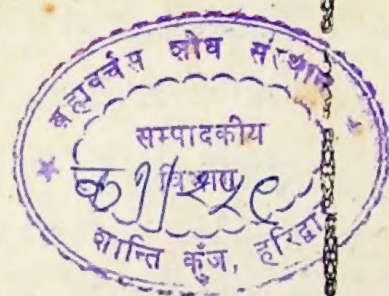 ब्रह्मवर्चस शोध संस्थान
सम्पादकीय
विभाग
शान्ति कुँज, हरिद्वार